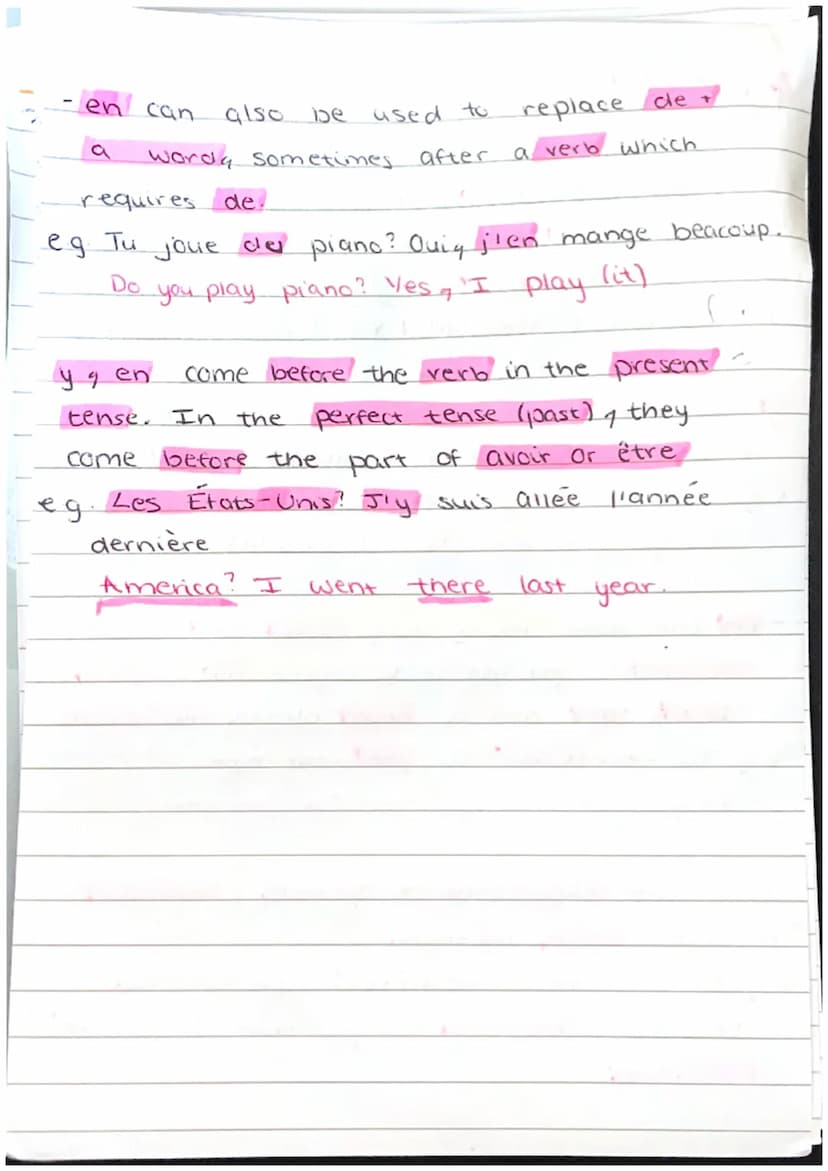 - en can also be used to replace de +
a word, sometimes after a verb which
requires de.
eg. Tu joue du piano? Oui, j'en mange beacoup.
Do you play piano? Yes, I play (it)
y, en come before the verb in the present
tense. In the perfect tense (past), they
come before the part of avoir or être
eg. Les États-Unis? J'y suis allée l'année
dernière
America? I went there last year.